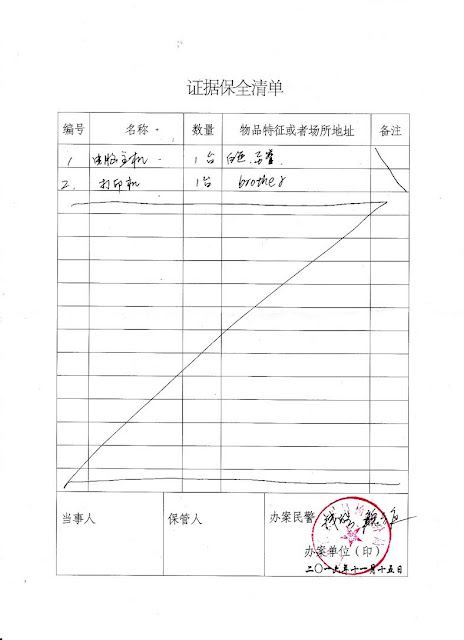 证据保全清单
编号 名称 数量 物品特征或者场所地址 备注
1 电脑主机 1台 白色
2. 打印机 1台 brother
当事人 保管人 办案民警
办案单位（印）
二〇一六年十一月十五日